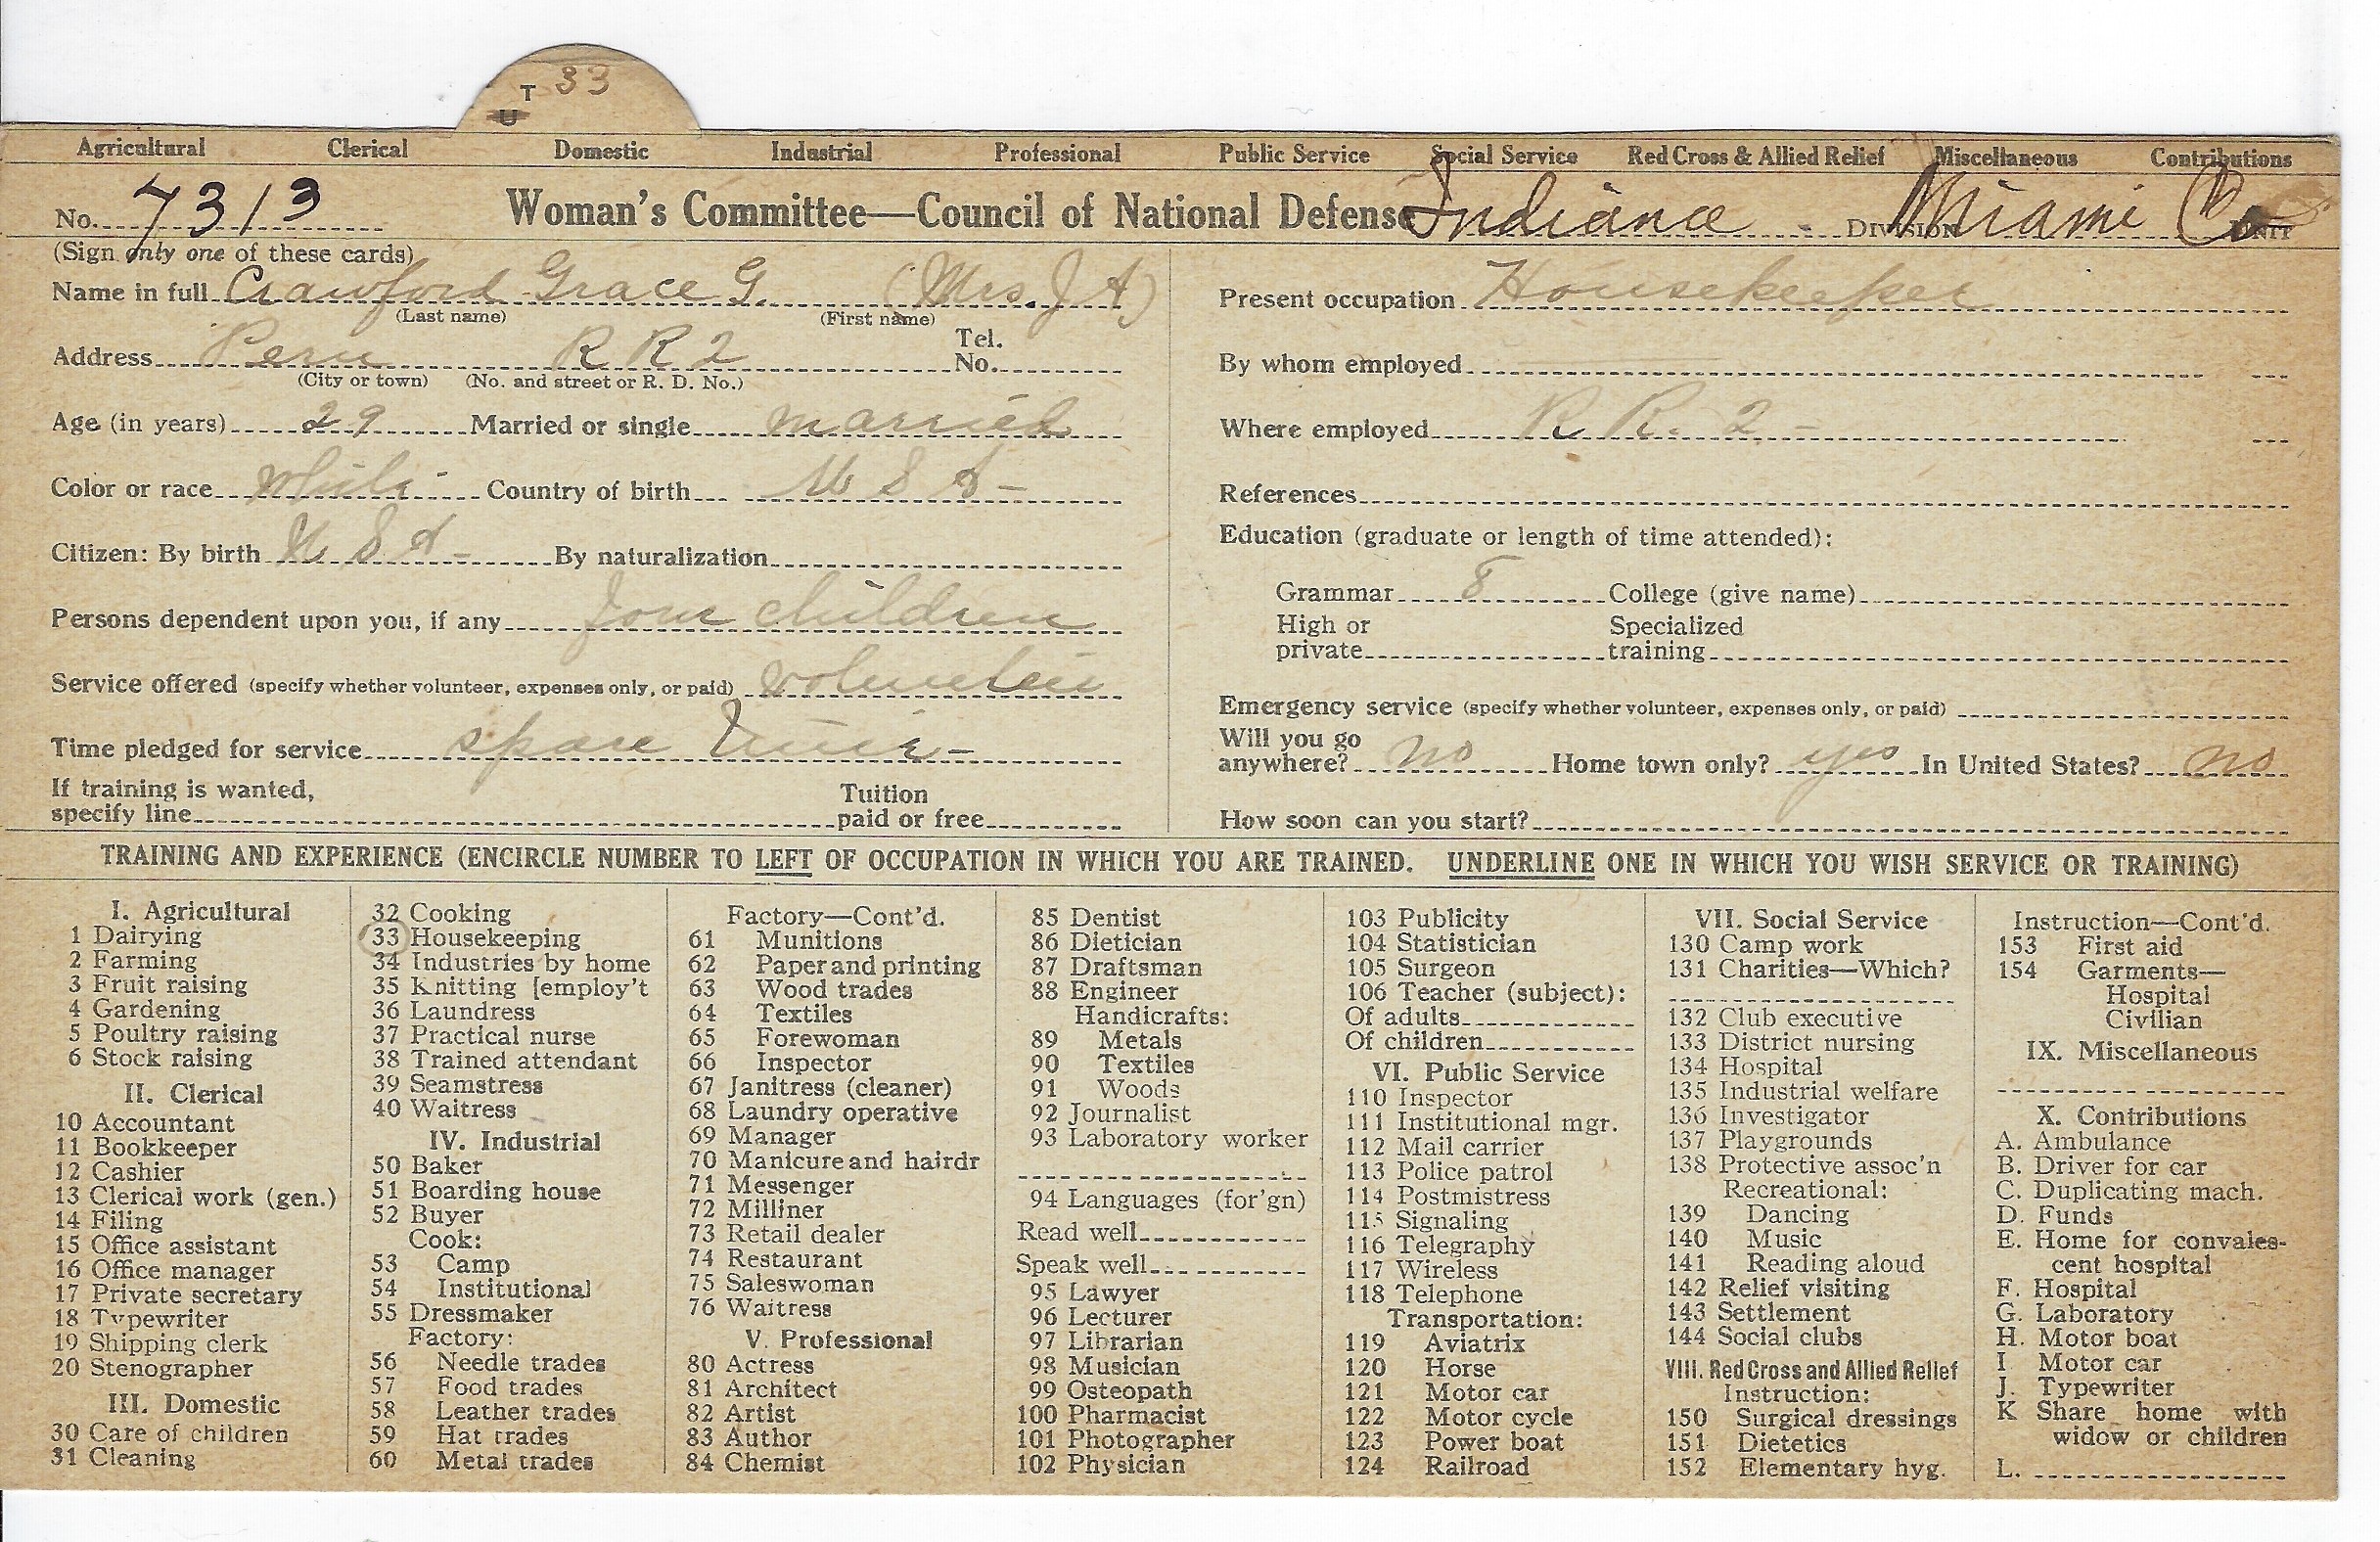 T 33
U
Agricultural Clerical Domestic Industrial Professional Public Service Social Service Red Cross & Allied Relief Miscellaneous Contributions
No. 7313 Woman's Committee—Council of National Defense Indiana DIVISION Miami Co UNIT
(Sign only one of these cards)
Name in full Crawford Grace G. (Mrs. J A)
(Last name) (First name)
Address Peru R R 2 Tel. No.
(City or town) (No. and street or R. D. No.)
Age (in years) 29 Married or single married
Color or race white Country of birth U S A -
Citizen: By birth U S A - By naturalization
Persons dependent upon you, if any four children
Service offered (specify whether volunteer, expenses only, or paid) volunteer
Time pledged for service spare time -
If training is wanted,
specify line Tuition paid or free
Present occupation Housekeeper
By whom employed
Where employed R R. 2 -
References
Education (graduate or length of time attended):
Grammar 8 College (give name)
High or private Specialized training
Emergency service (specify whether volunteer, expenses only, or paid)
Will you go anywhere? no Home town only? yes In United States? no
How soon can you start?
TRAINING AND EXPERIENCE (ENCIRCLE NUMBER TO LEFT OF OCCUPATION IN WHICH YOU ARE TRAINED. UNDERLINE ONE IN WHICH YOU WISH SERVICE OR TRAINING)
I. Agricultural
1 Dairying
2 Farming
3 Fruit raising
4 Gardening
5 Poultry raising
6 Stock raising
II. Clerical
10 Accountant
11 Bookkeeper
12 Cashier
13 Clerical work (gen.)
14 Filing
15 Office assistant
16 Office manager
17 Private secretary
18 Typewriter
19 Shipping clerk
20 Stenographer
III. Domestic
30 Care of children
31 Cleaning
32 Cooking
33 Housekeeping
34 Industries by home
35 Knitting [employ't
36 Laundress
37 Practical nurse
38 Trained attendant
39 Seamstress
40 Waitress
IV. Industrial
50 Baker
51 Boarding house
52 Buyer
Cook:
53 Camp
54 Institutional
55 Dressmaker
Factory:
56 Needle trades
57 Food trades
58 Leather trades
59 Hat trades
60 Metal trades
Factory—Cont'd.
61 Munitions
62 Paper and printing
63 Wood trades
64 Textiles
65 Forewoman
66 Inspector
67 Janitress (cleaner)
68 Laundry operative
69 Manager
70 Manicure and hairdr
71 Messenger
72 Milliner
73 Retail dealer
74 Restaurant
75 Saleswoman
76 Waitress
V. Professional
80 Actress
81 Architect
82 Artist
83 Author
84 Chemist
85 Dentist
86 Dietician
87 Draftsman
88 Engineer
Handicrafts:
89 Metals
90 Textiles
91 Woods
92 Journalist
93 Laboratory worker
94 Languages (for'gn)
Read well
Speak well
95 Lawyer
96 Lecturer
97 Librarian
98 Musician
99 Osteopath
100 Pharmacist
101 Photographer
102 Physician
103 Publicity
104 Statistician
105 Surgeon
106 Teacher (subject):
Of adults
Of children
VI. Public Service
110 Inspector
111 Institutional mgr.
112 Mail carrier
113 Police patrol
114 Postmistress
115 Signaling
116 Telegraphy
117 Wireless
118 Telephone
Transportation:
119 Aviatrix
120 Horse
121 Motor car
122 Motor cycle
123 Power boat
124 Railroad
VII. Social Service
130 Camp work
131 Charities—Which?
132 Club executive
133 District nursing
134 Hospital
135 Industrial welfare
136 Investigator
137 Playgrounds
138 Protective assoc'n
Recreational:
139 Dancing
140 Music
141 Reading aloud
142 Relief visiting
143 Settlement
144 Social clubs
VIII. Red Cross and Allied Relief
Instruction:
150 Surgical dressings
151 Dietetics
152 Elementary hyg.
Instruction—Cont'd.
153 First aid
154 Garments—
Hospital
Civilian
IX. Miscellaneous
X. Contributions
A. Ambulance
B. Driver for car
C. Duplicating mach.
D. Funds
E. Home for convales-
cent hospital
F. Hospital
G. Laboratory
H. Motor boat
I Motor car
J. Typewriter
K Share home with
widow or children
L.